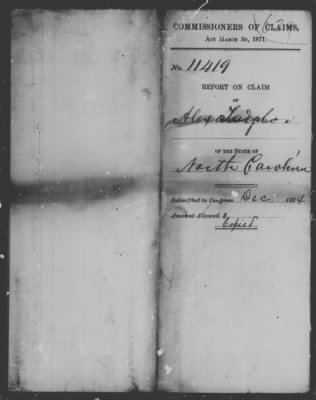 COMMISSIONERS OF CLAIMS,
ACT MARCH 3D, 1871.
No. 11419
REPORT ON CLAIM
OF
Alex
OF THE STATE OF
North Carolina
Submitted to Congress Dec. 1874
Amount Allowed. $
Copied